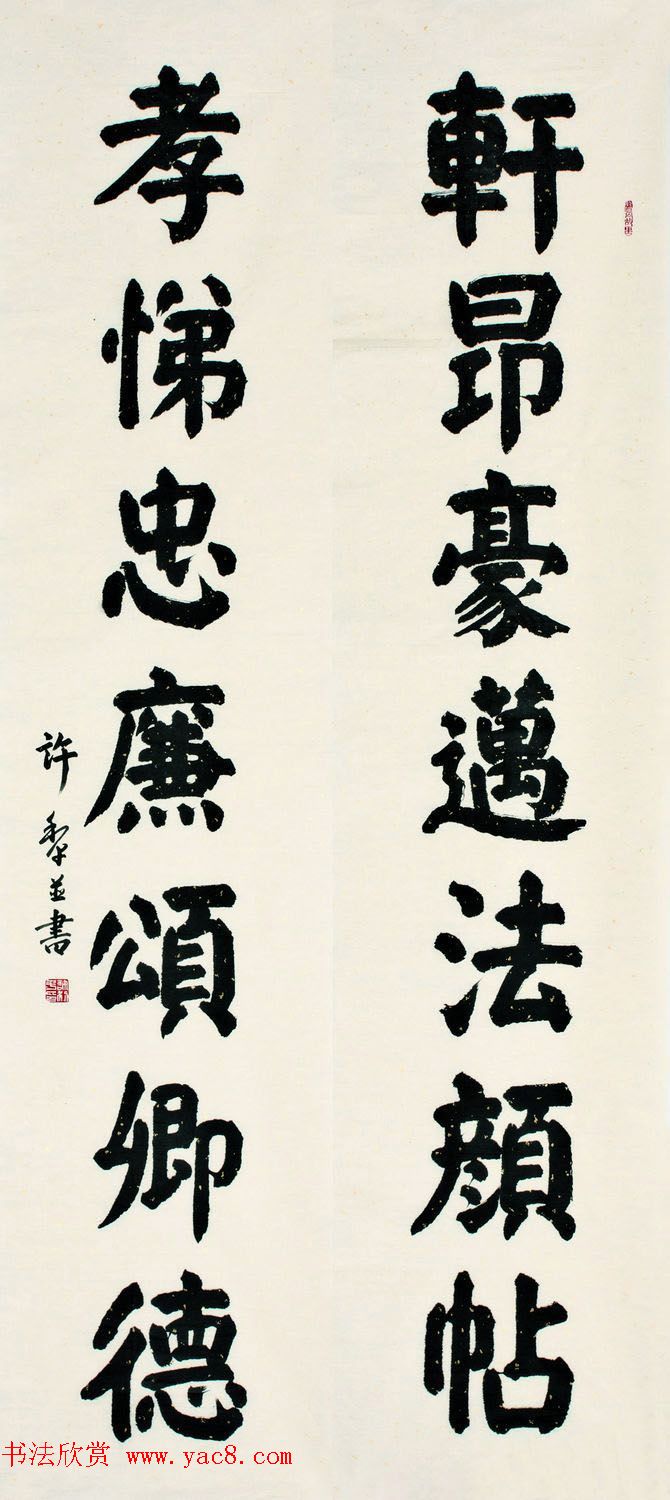 軒昂豪邁法顔帖
孝悌忠廉頌卿德
許黎並書
书法欣赏 www.yac8.com